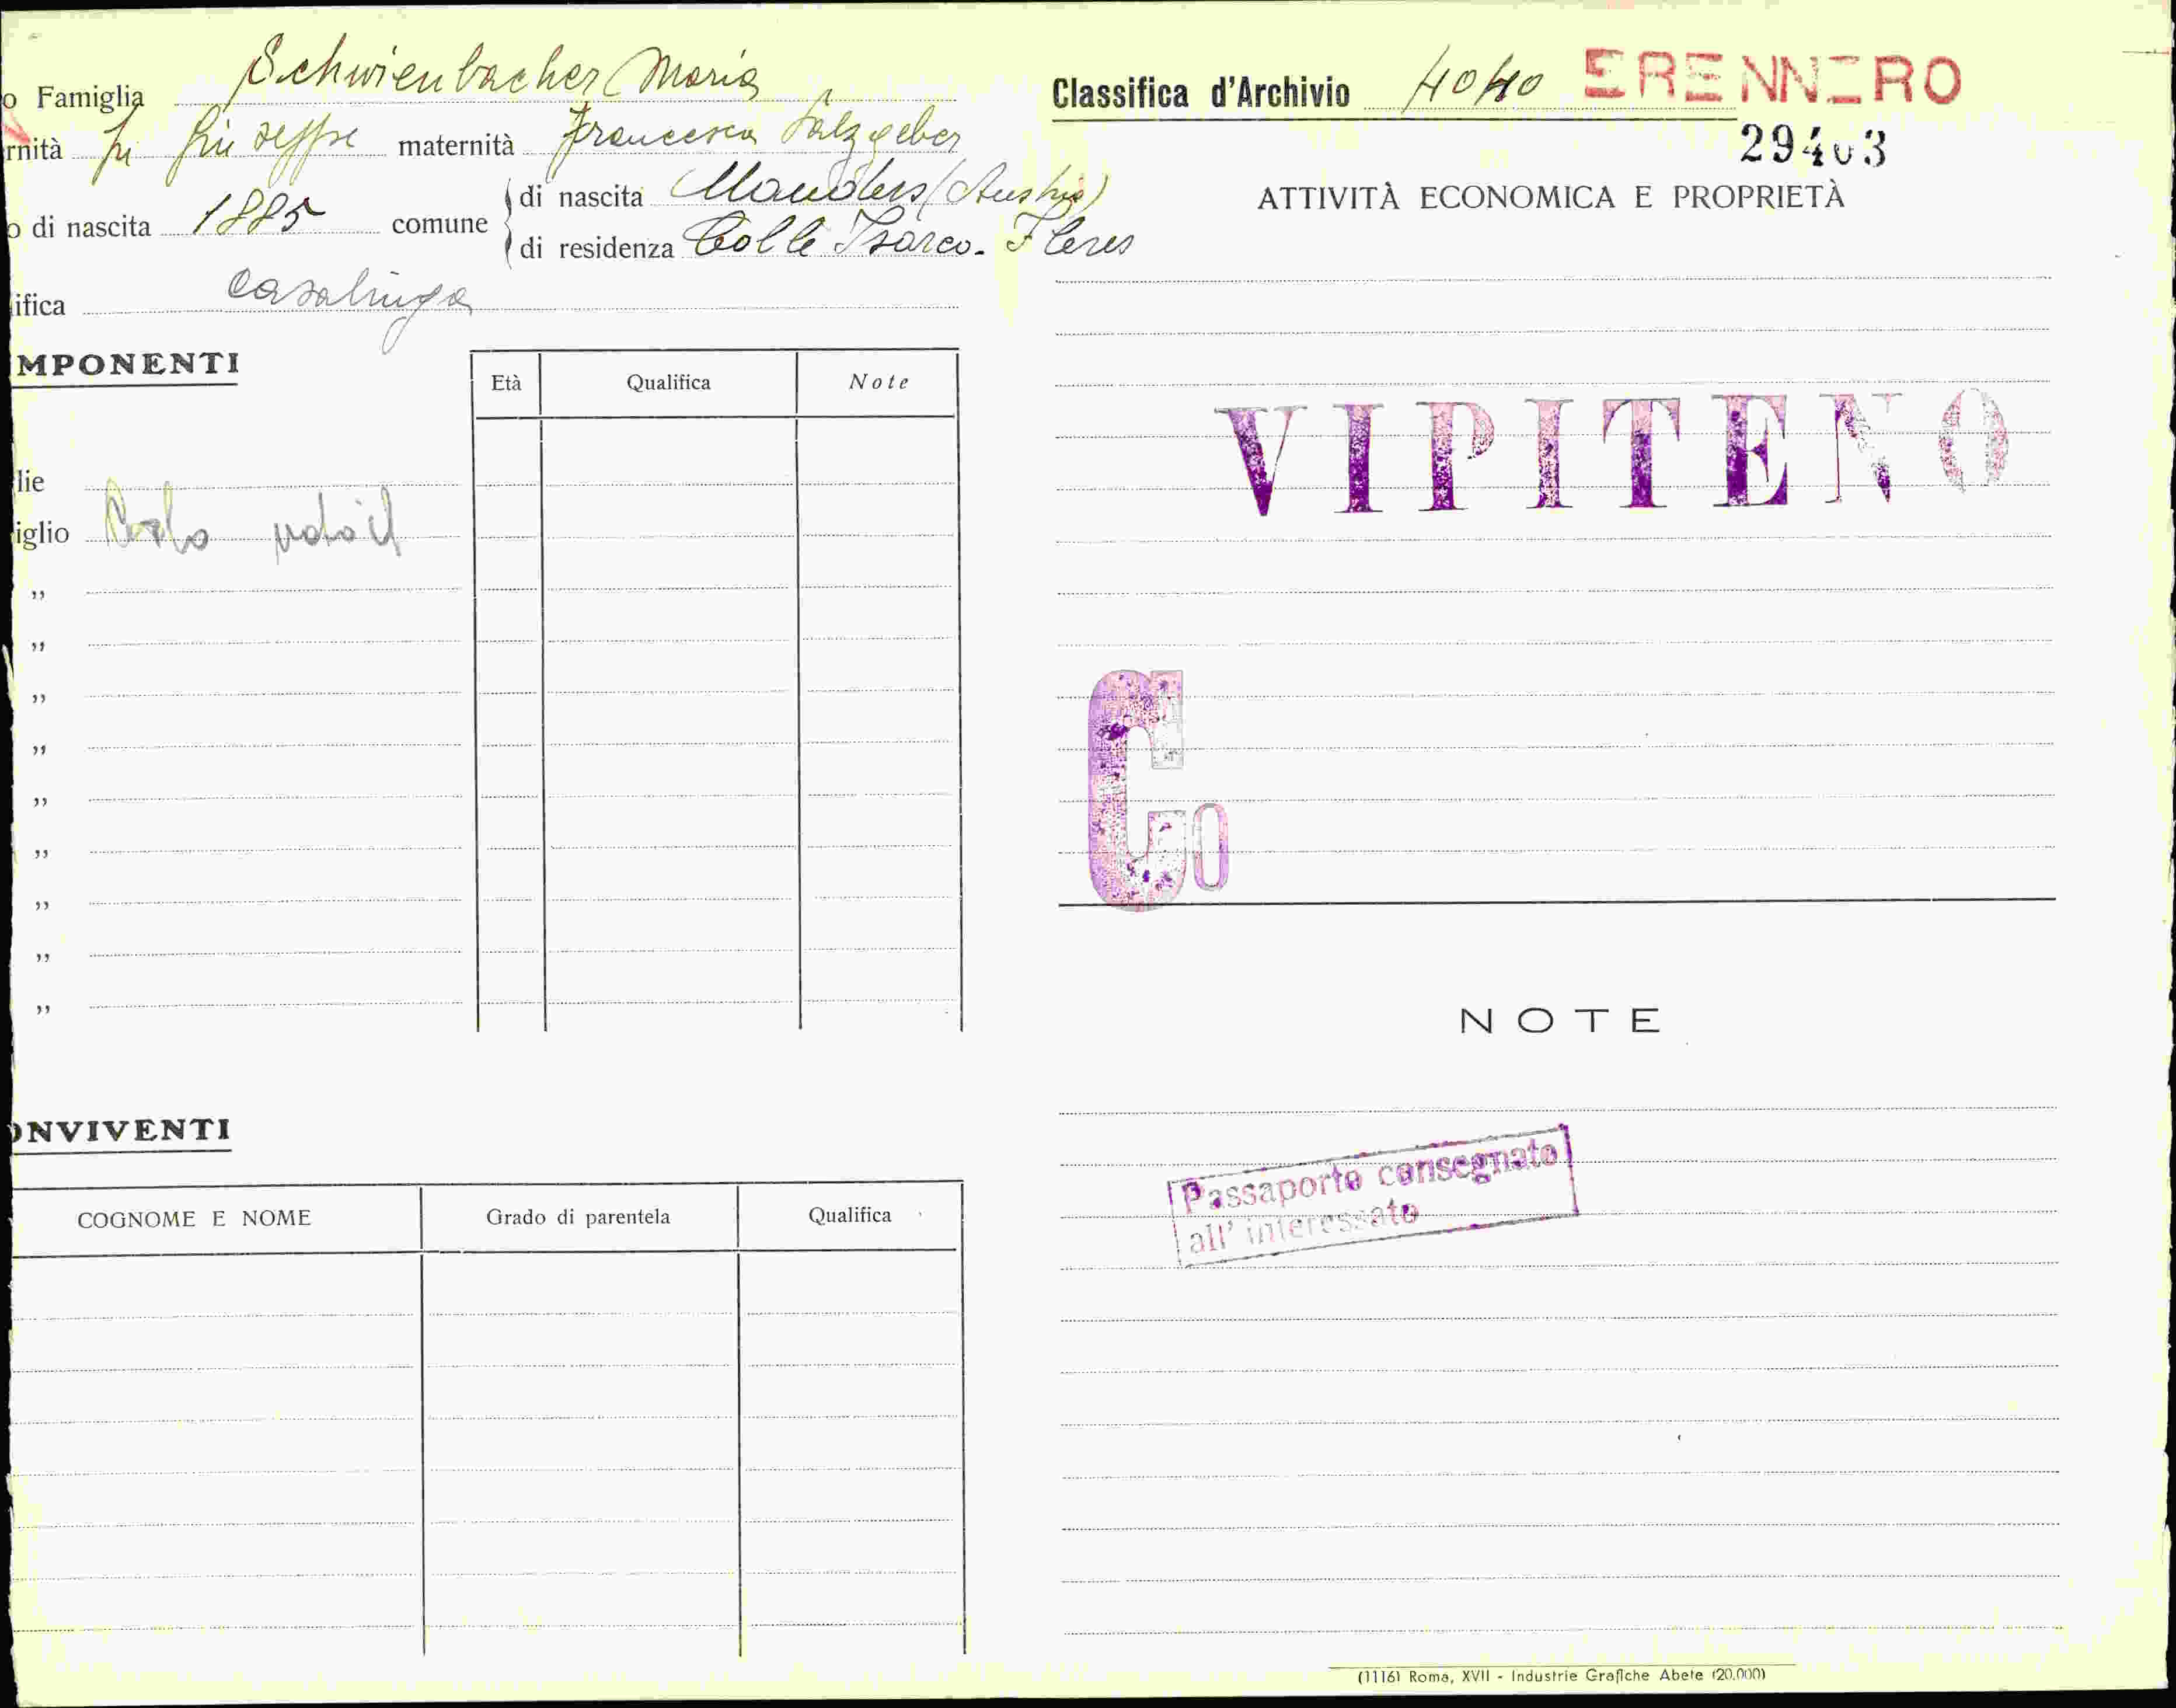 o Famiglia Schwienbacher Maria
rnità fu Giuseppe maternità Francesca Salzgeber
o di nascita 1885 comune di nascita Nauders (Austria)
di residenza Colle Isarco - Fleres
ifica casalinga
MPONENTI
Età Qualifica Note
lie
iglio Carlo
„
„
„
„
„
„
„
„
„
ONVIVENTI
COGNOME E NOME Grado di parentela Qualifica
Classifica d'Archivio 4040 BRENNERO
29403
ATTIVITÀ ECONOMICA E PROPRIETÀ
VIPITENO
Co
NOTE
Passaporto consegnato
all' interessato
(1116) Roma, XVII - Industrie Grafiche Abete (20.000)